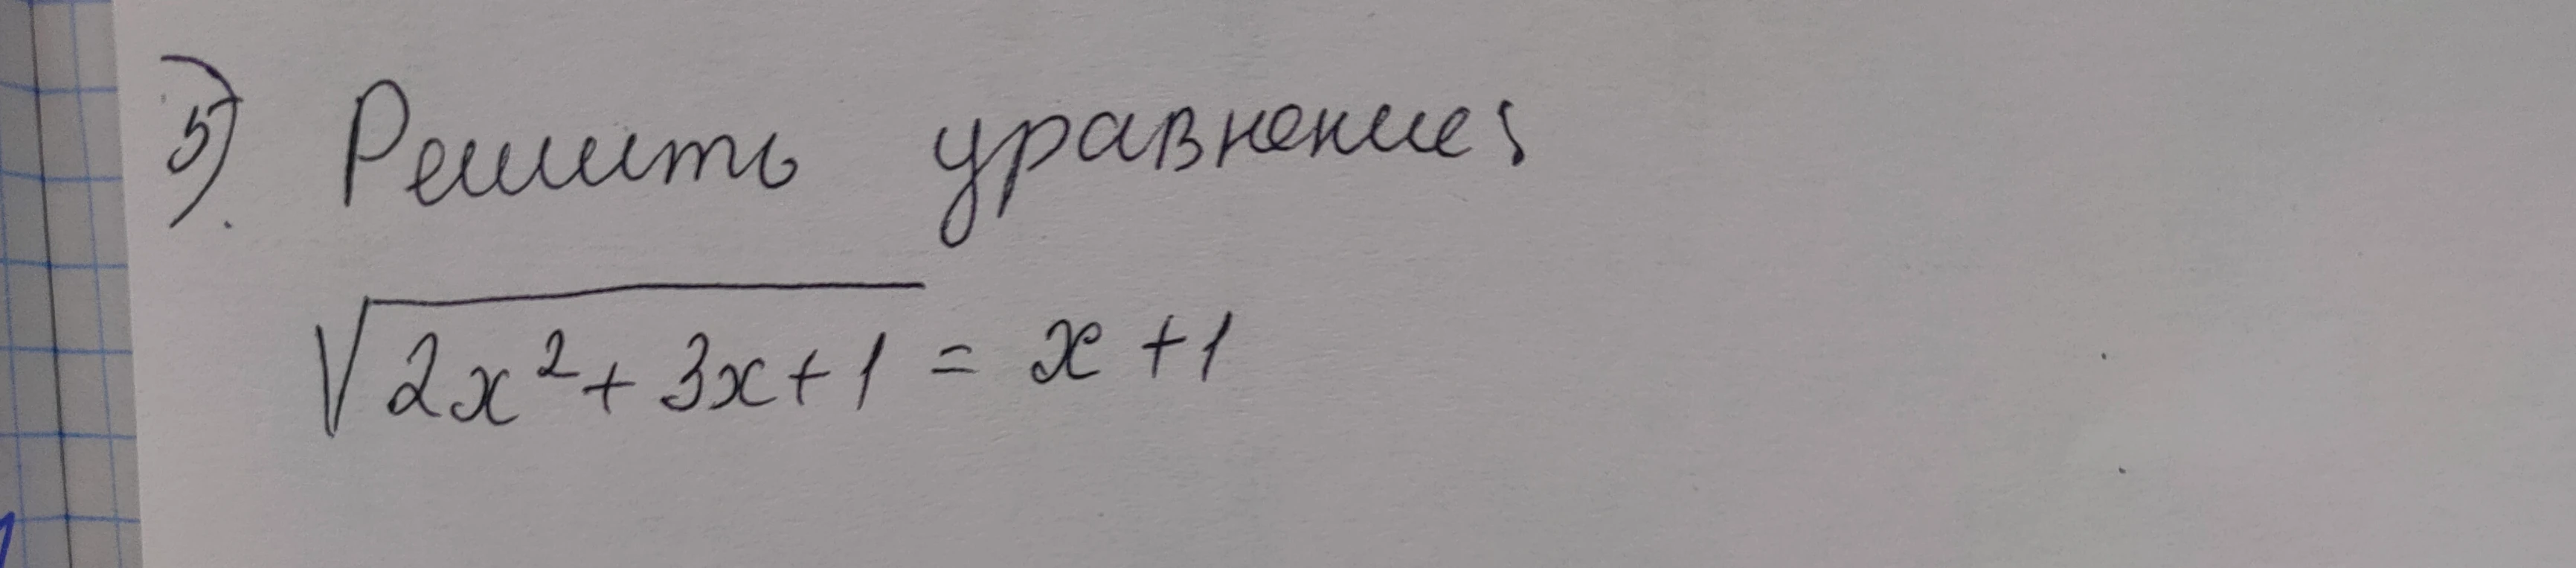 5). Решить уравнение:
√(2x²+3x+1) = x+1